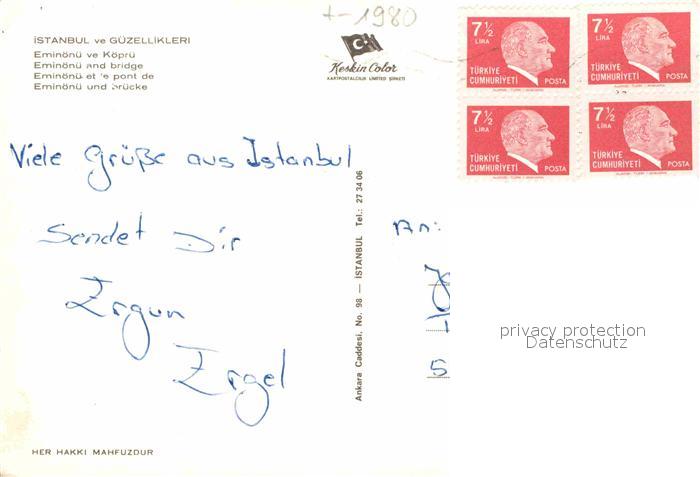 +-1980
İSTANBUL ve GÜZELLİKLERİ
Eminönü ve Köprü
Eminönü and bridge
Eminönü et le pont de
Eminönü und brücke
Keskin Color
KARTPOSTALCILIK LİMİTED ŞİRKETİ
7½ LİRA
TÜRKİYE
CUMHURİYETİ POSTA
7½ LİRA
TÜRKİYE
CUMHURİYETİ POSTA
7½ LİRA
TÜRKİYE
CUMHURİYETİ POSTA
7½ LİRA
TÜRKİYE
CUMHURİYETİ POSTA
Viele Grüße aus Istanbul
Sendet Dir
Ergun
Ergel
Ankara Caddesi, No. 98 — İSTANBUL Tel.: 27 34 06
An:
5
privacy protection
Datenschutz
HER HAKKI MAHFUZDUR